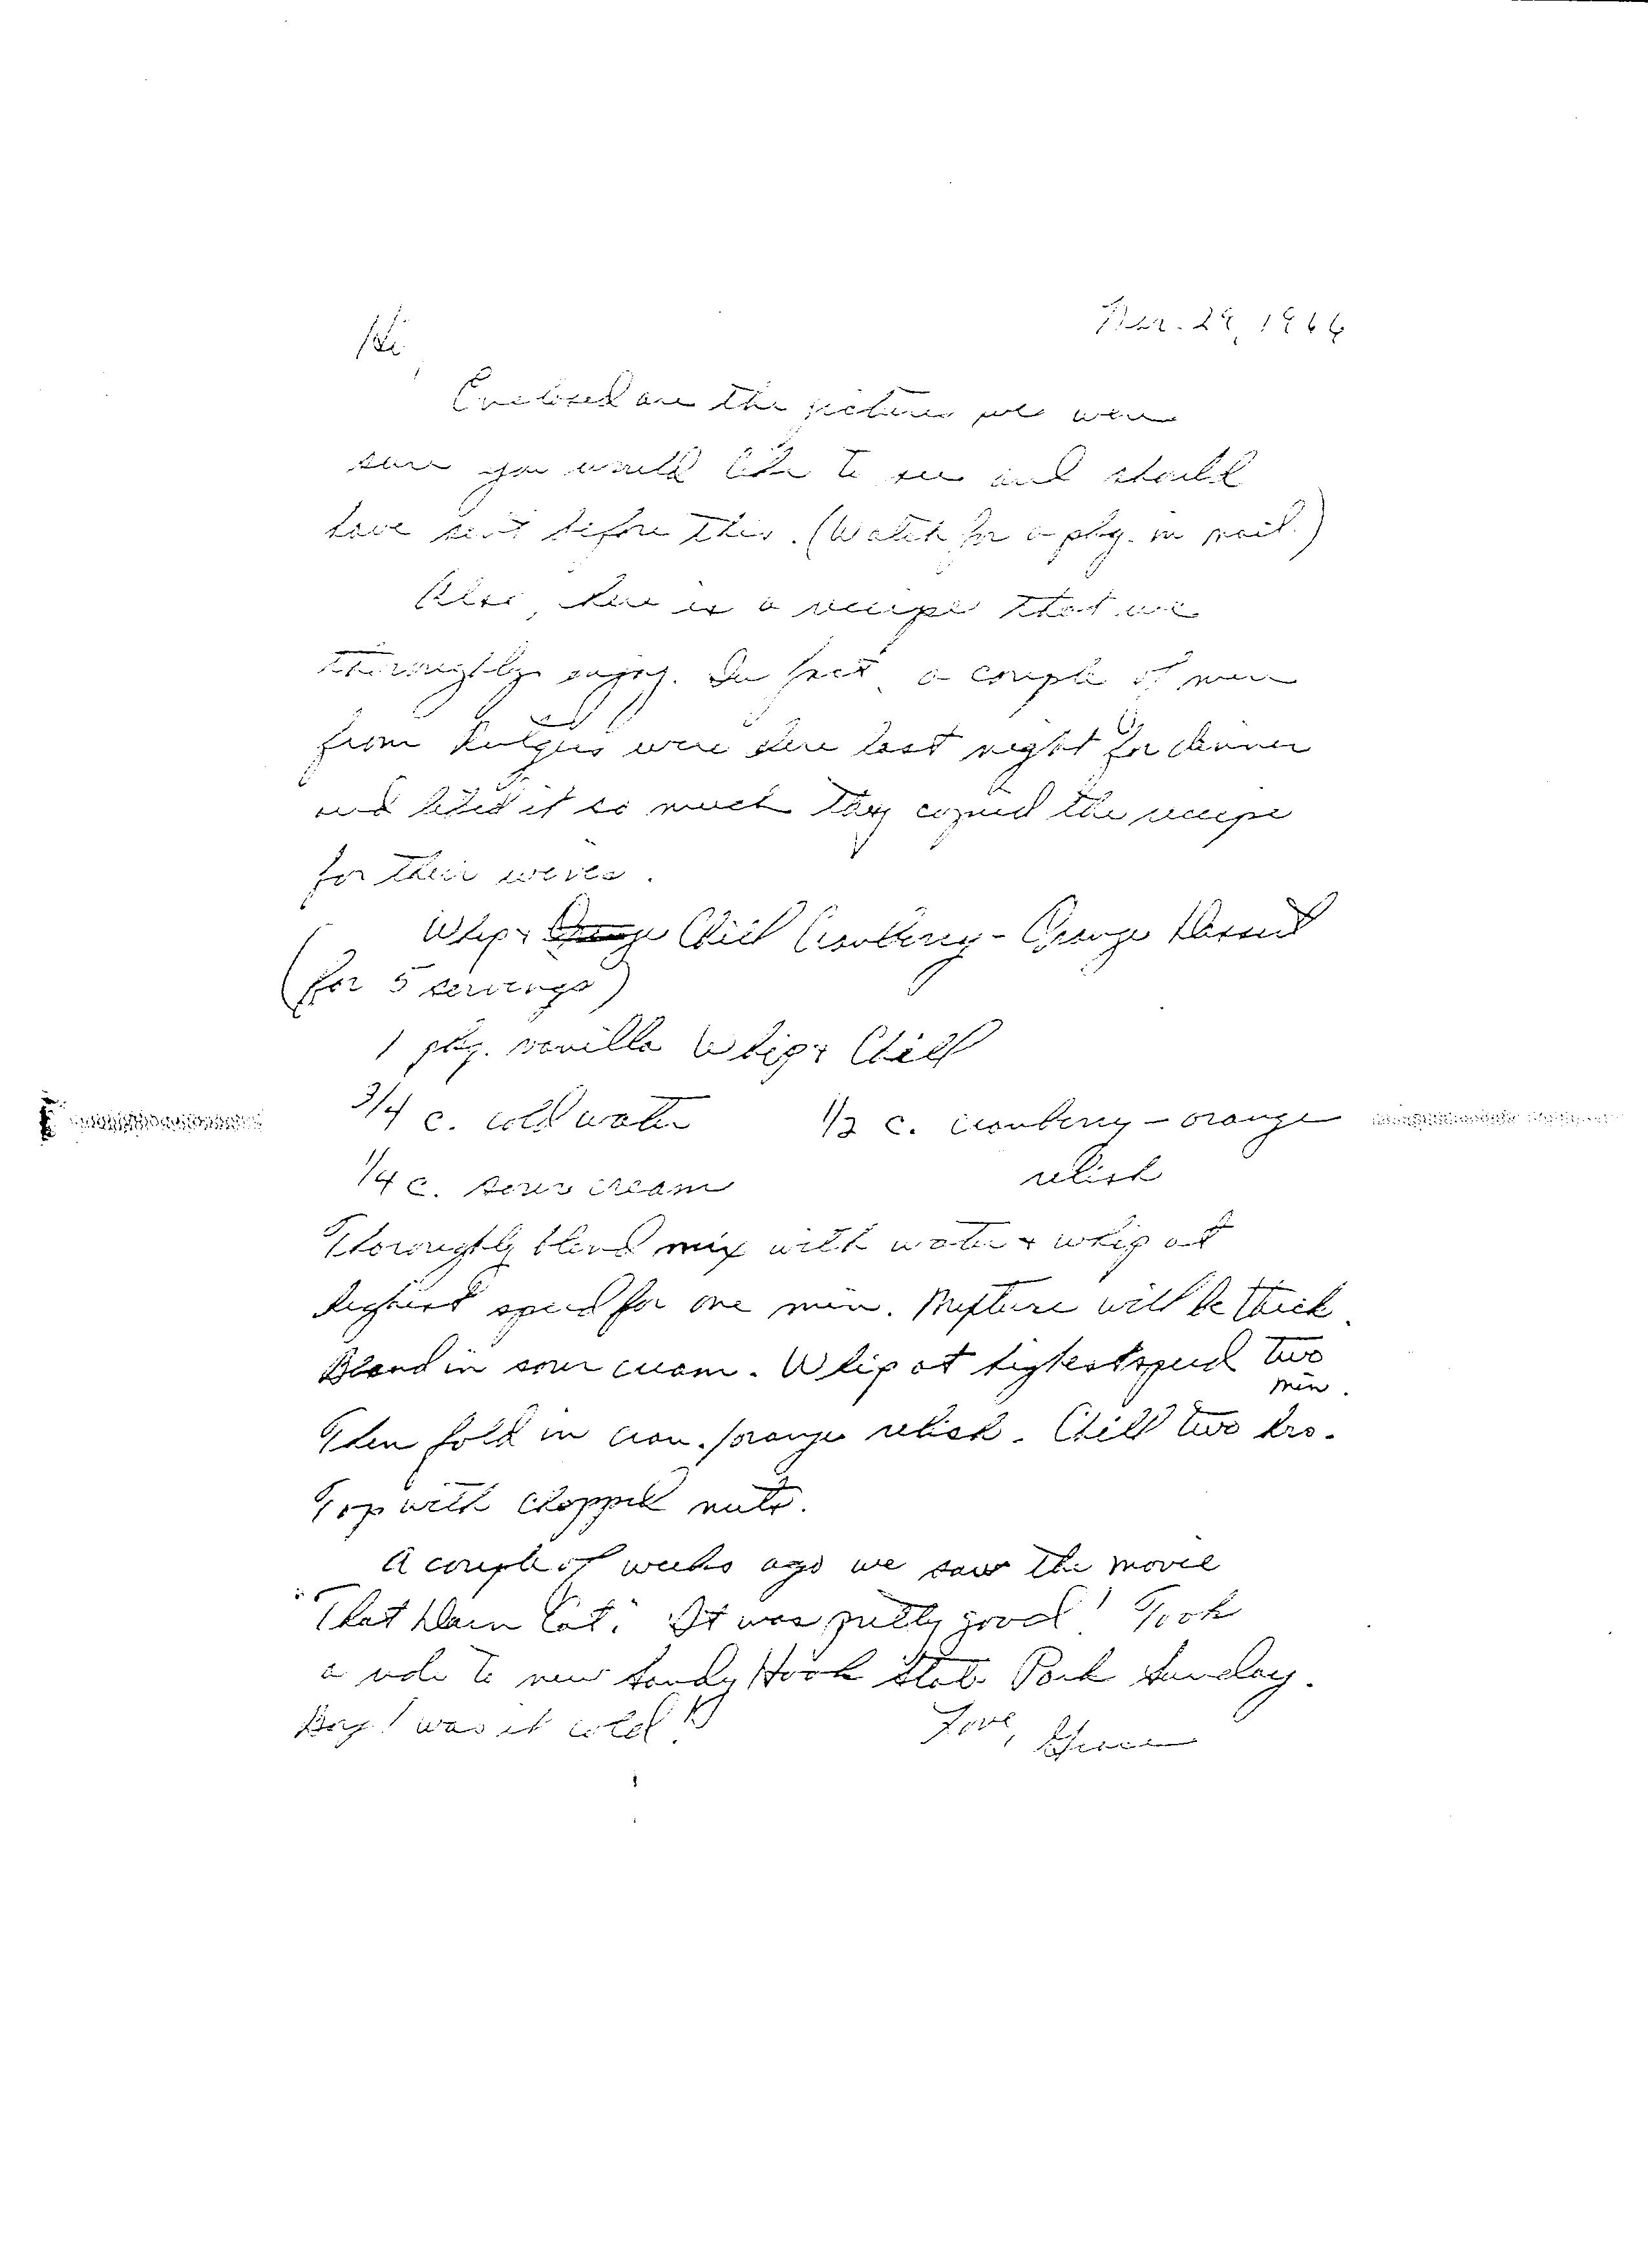 Nov. 29, 1966
Hi,
Enclosed are the pictures we were
sure you would like to see and should
have sent before this. (Watch for a pkg. in mail.)
Also, here is a recipe that we
thoroughly enjoy. In fact, a couple of men
from Rutgers were here last night for dinner
and liked it so much they copied the recipe
for their wives.
Whip & Orange Chill Cranberry-Orange Dessert
(for 5 servings)
1 pkg. vanilla Whip & Chill
3/4 c. cold water 1/2 c. cranberry-orange
1/4 c. sour cream relish
Thoroughly blend mix with water & whip at
highest speed for one min. Mixture will be thick.
Blend in sour cream. Whip at highest speed two
min.
Then fold in cran./orange relish. Chill two hrs.
Top with chopped nuts.
A couple of weeks ago we saw the movie
"That Darn Cat." It was pretty good! Took
a ride to new Sandy Hook State Park Sunday.
Boy! was it cold!!
Love, Grace